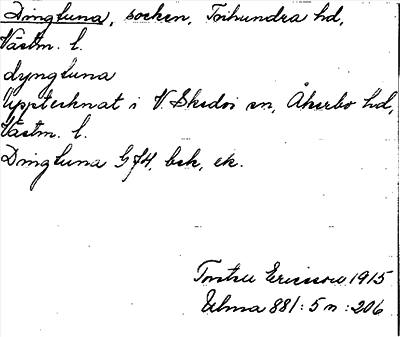 Dingtuna, socken, Tuhundra hd,
Västm. l.
dyngtuna
Upptecknat i V. Skedvi sn, Åkerbo hd,
Västm. l.
Dingtuna G f4, bek, ek.
Torsten Ericsson 1915
Ulma 881:5 n :206